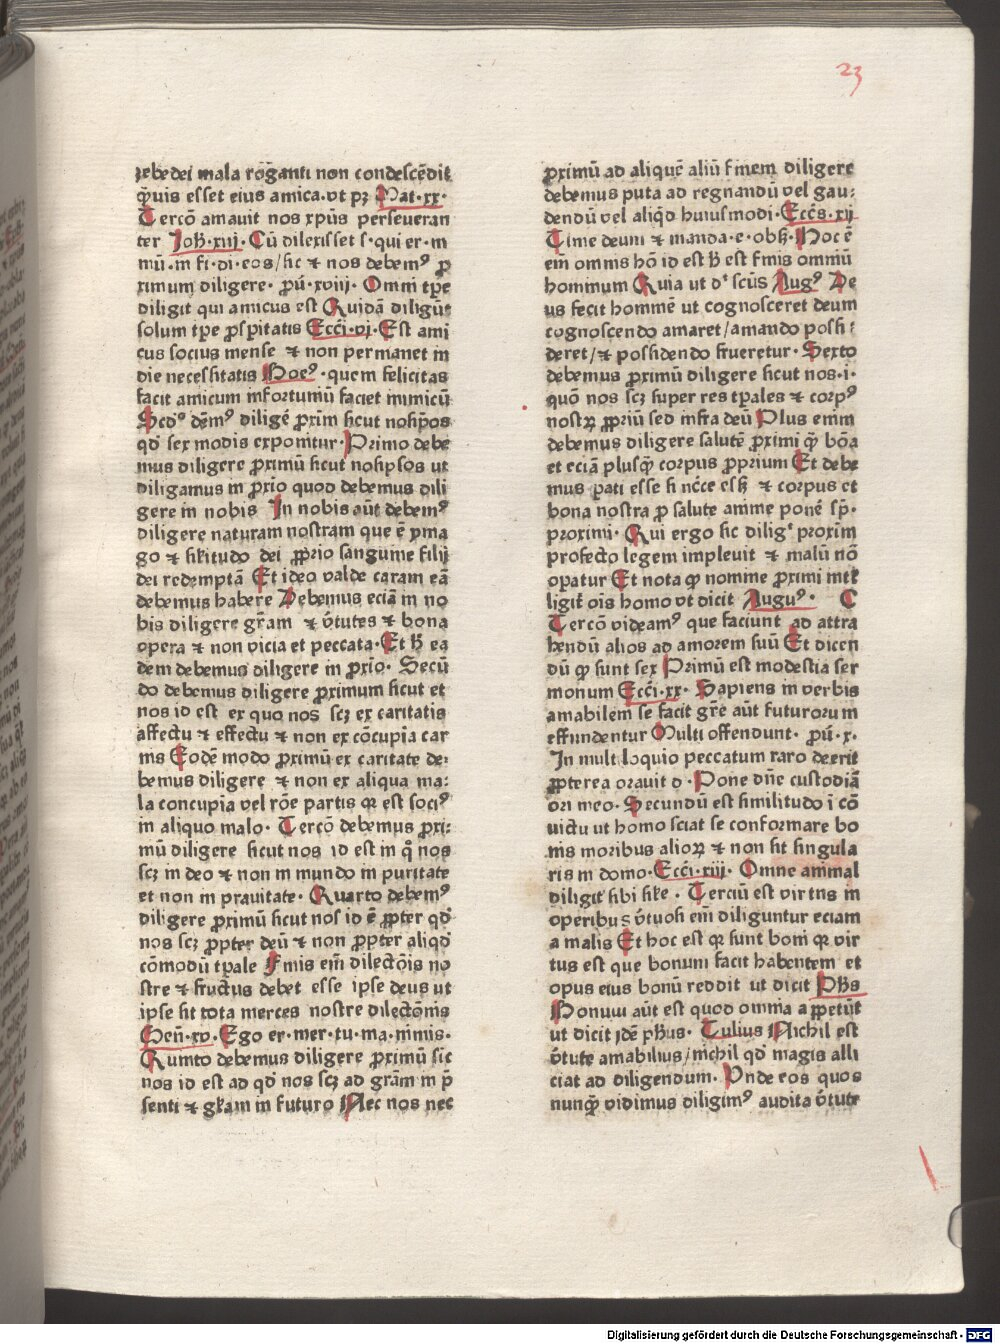 23
zebedei mala rog̃anti non condescẽdit
q̃uis esset eius amica.vt pꝫ Mat.xx.
Tercõ amauit nos xp̃us perseueran
ter Joh̃.xiij. Cũ dilexisset s.qui er.in
mũ.in fi.di.eos/sic ⁊ nos debemꝰ ꝓ
ximum diligere. ꝓũ.xviij. Omni tp̃e
diligit qui amicus est Quidã diligũt
solum tp̃e ꝓspitatis Ecc̃i.vj. Est ami
cus socius mense ⁊ non permanet in
die necessitatis Boeꝰ.quem felicitas
facit amicum infortuniũ faciet inimicũ
Scdꝰ dẽmꝰ diligẽ ꝓxim̃ sicut nosip̃os
qd̃ sex modis exponitur. Primo debe
mus diligere ꝓximũ sicut nosipsos ut
diligamus in ꝓxio quod debemus dili
gere in nobis In nobis aũt debemꝰ
diligere naturam nostram que ẽ ymа
go ⁊ sil̃itudo dei ꝓprio sanguine filij
dei redemptã Et ideo valde caram eã
debemus habere Debemus eciã in no
bis diligere gr̃am ⁊ v̓tutes ⁊ bona
opera ⁊ non vicia et peccata. Et h̃ ea
dem debemus diligere in ꝓxio. Secũ
do debemus diligere ꝓximum sicut et
nos id est ex quo nos scꝫ ex caritatis
affectu ⁊ effectu ⁊ non ex cõcupia car
nis Eodẽ modo ꝓximũ ex caritate de-
bemus diligere ⁊ non ex aliqua ma-
la concupĩa vel rõe partis qꝛ est sociꝰ
in aliquo malo. Tercõ debemus ꝓxi-
mũ diligere sicut nos id est in q̊ nos
scꝫ in deo ⁊ non in mundo in puritate
et non in prauitate. Quarto debemꝰ
diligere ꝓximũ sicut nos id ẽ ꝓpter qd̃
nos scꝫ ꝓpter deũ ⁊ non ꝓpter aliqd̃
cõmodũ tp̃ale Finis em̃ dilectõis no
stre ⁊ fructus debet esse ipse deus ut
ipse sit tota merces nostre dilectõnis
Gen̄.xv. Ego er.mer.tu.ma.nimis.
Quinto debemus diligere ꝓximũ sic
nos id est ad qd̃ nos scꝫ ad gr̃am in p̃
senti ⁊ gl̃am in futuro Nec nos nec
ꝓximũ ad aliquẽ aliũ finem diligere
debemus puta ad regnandũ vel gau-
dendũ vel aliqd̃ huiusmodi. Ecc̃s.xij
Time deum ⁊ manda.e.obß. Hoc ẽ
em̃ omnis hõ id est h̃ est finis omniũ
hominum Quia ut dꝰ sc̃us Augꝰ De
us fecit hominẽ ut cognosceret deum
cognoscendo amaret/amando possi-
deret/⁊ possidendo frueretur. Sexto
debemus ꝓximũ diligere sicut nos.i.
quõ nos scꝫ super res tp̃ales ⁊ corpꝰ
nostꝝ ꝓpriũ sed infra deũ Plus enim
debemus diligere salutẽ ꝓximi q̃ bõa
et eciã plusq̃ corpus ꝓprium Et debe
mus pati esse si nc̃ce esß ⁊ corpus et
bona nostra ꝓ salute anime ponẽ sp̃-
proximi. Qui ergo sic diligᵗ proxim̃
profecto legem impleuit ⁊ malũ nõ
opatur Et nota ꝙ nomine ꝓximi intel̃
ligit̃ ois homo vt dicit Auguꝰ. C
Tercõ videamꝰ que faciunt ad attra
hendũ alios ad amorem suũ Et dicen
dũ ꝙ sunt sex Primũ est modestia ser
monum Ecc̃i.xx. Sapiens in verbis
amabilem se facit gr̃e aũt futurorum
effundentur Multi offendunt. ꝓũ.x.
In multiloquio peccatum raro deerit
ꝓpterea orauit d. Pone dñe custodiã
ori meo. Secundũ est similitudo i cõ
uictu ut homo sciat se conformare bo
nis moribus alioꝝ ⁊ non sit singula
ris in domo. Ecc̃i.xiij. Omne animal
diligit̃ sibi sil̃e. Terciũ est virtus in
operibus v̓tuosi em̃ diliguntur eciam
a malis Et hoc est qꝛ sunt boni qꝛ vir
tus est que bonum facit habentem et
opus eius bonũ reddit ut dicit Ph̃s
Bonum aũt est quod omnia appetũt
ut dicit idẽ ph̃us. Tulius Nichil est
v̓tute amabilius/nichil qd̃ magis alli
ciat ad diligendum. Vnde eos quos
nunq̃ vidimus diligimꝰ audita v̓tute
Digitalisierung gefördert durch die Deutsche Forschungsgemeinschaft - DFG